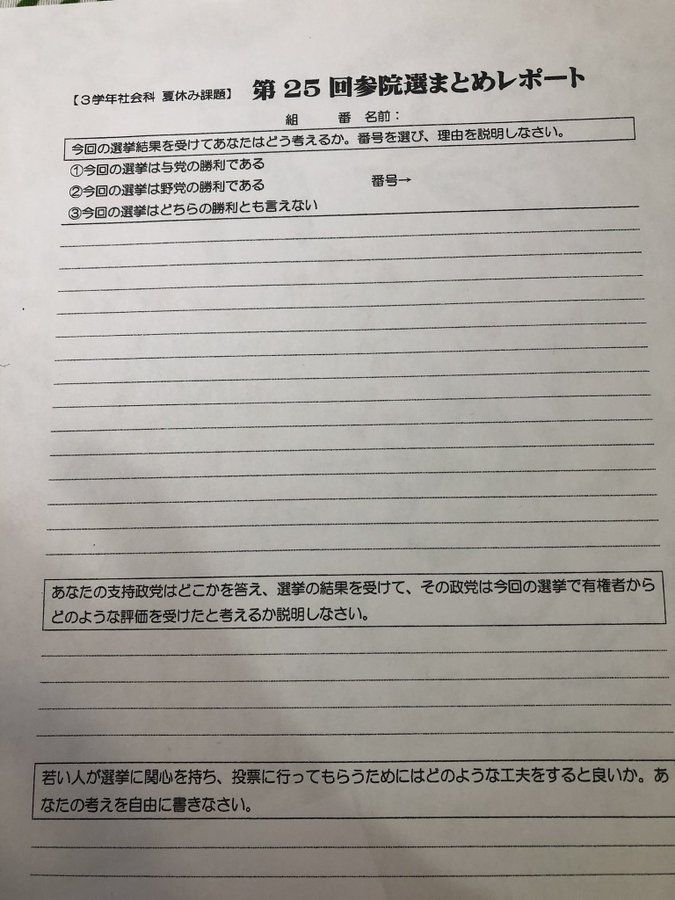 【3学年社会科 夏休み課題】 第25回参院選まとめレポート
組 番 名前：
今回の選挙結果を受けてあなたはどう考えるか。番号を選び、理由を説明しなさい。
①今回の選挙は与党の勝利である
②今回の選挙は野党の勝利である 番号→
③今回の選挙はどちらの勝利とも言えない
あなたの支持政党はどこかを答え、選挙の結果を受けて、その政党は今回の選挙で有権者から
どのような評価を受けたと考えるか説明しなさい。
若い人が選挙に関心を持ち、投票に行ってもらうためにはどのような工夫をすると良いか。あ
なたの考えを自由に書きなさい。